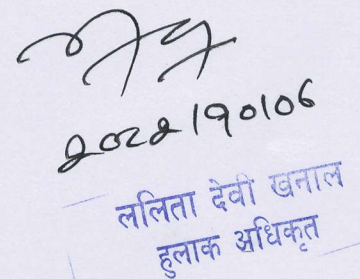 2022/10/06
ललिता देवी खनाल
हुलाक अधिकृत